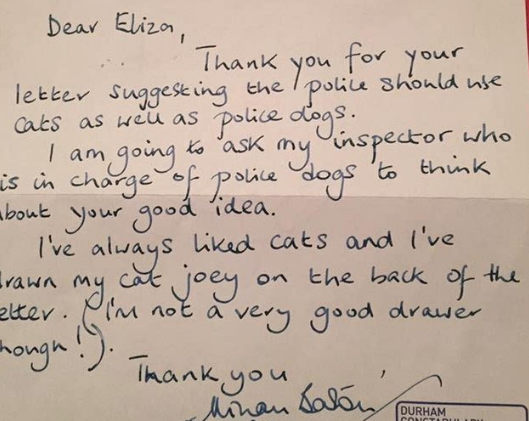 Dear Eliza,
Thank you for your
letter suggesting the police should use
cats as well as police dogs.
I am going to ask my inspector who
is in charge of police dogs to think
about your good idea.
I've always liked cats and I've
drawn my cat joey on the back of the
letter. (I'm not a very good drawer
though!).
Thank you
DURHAM
CONSTABULARY